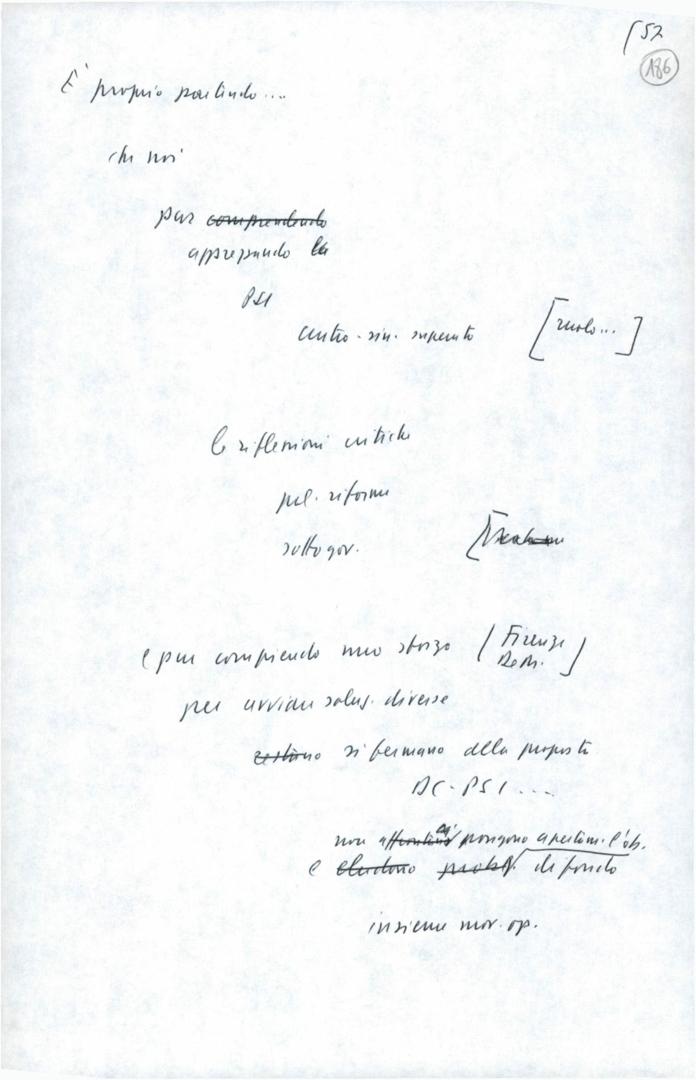 52
186
È proprio partendo...
che noi
pur comprendendo
apprezzando la
PSI
centro-sin. superato [ruolo...]
le riflessioni critiche
pol. riforme
sottogov.
e pur compiendo uno sforzo (Firenze
Bom.)
per avviare soluz. diverse
si fermano alla proposta
DC-PSI ....
non affrontano pongono apertam. l'ob.
e eludono probl. di fondo
insieme mov. op.